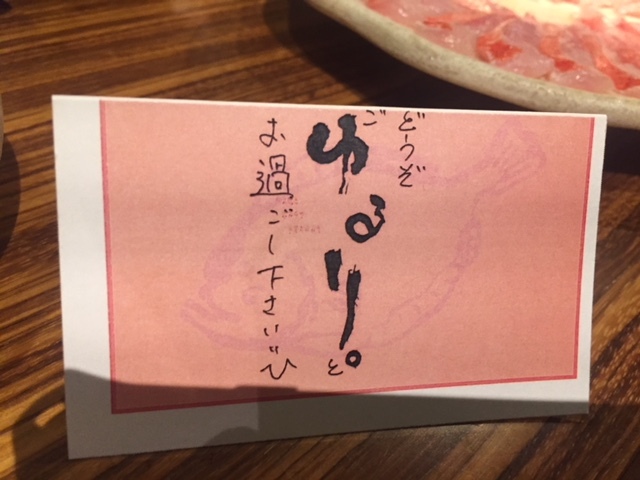 どうぞ
ごゆるりと。
お過ごし下さいませ